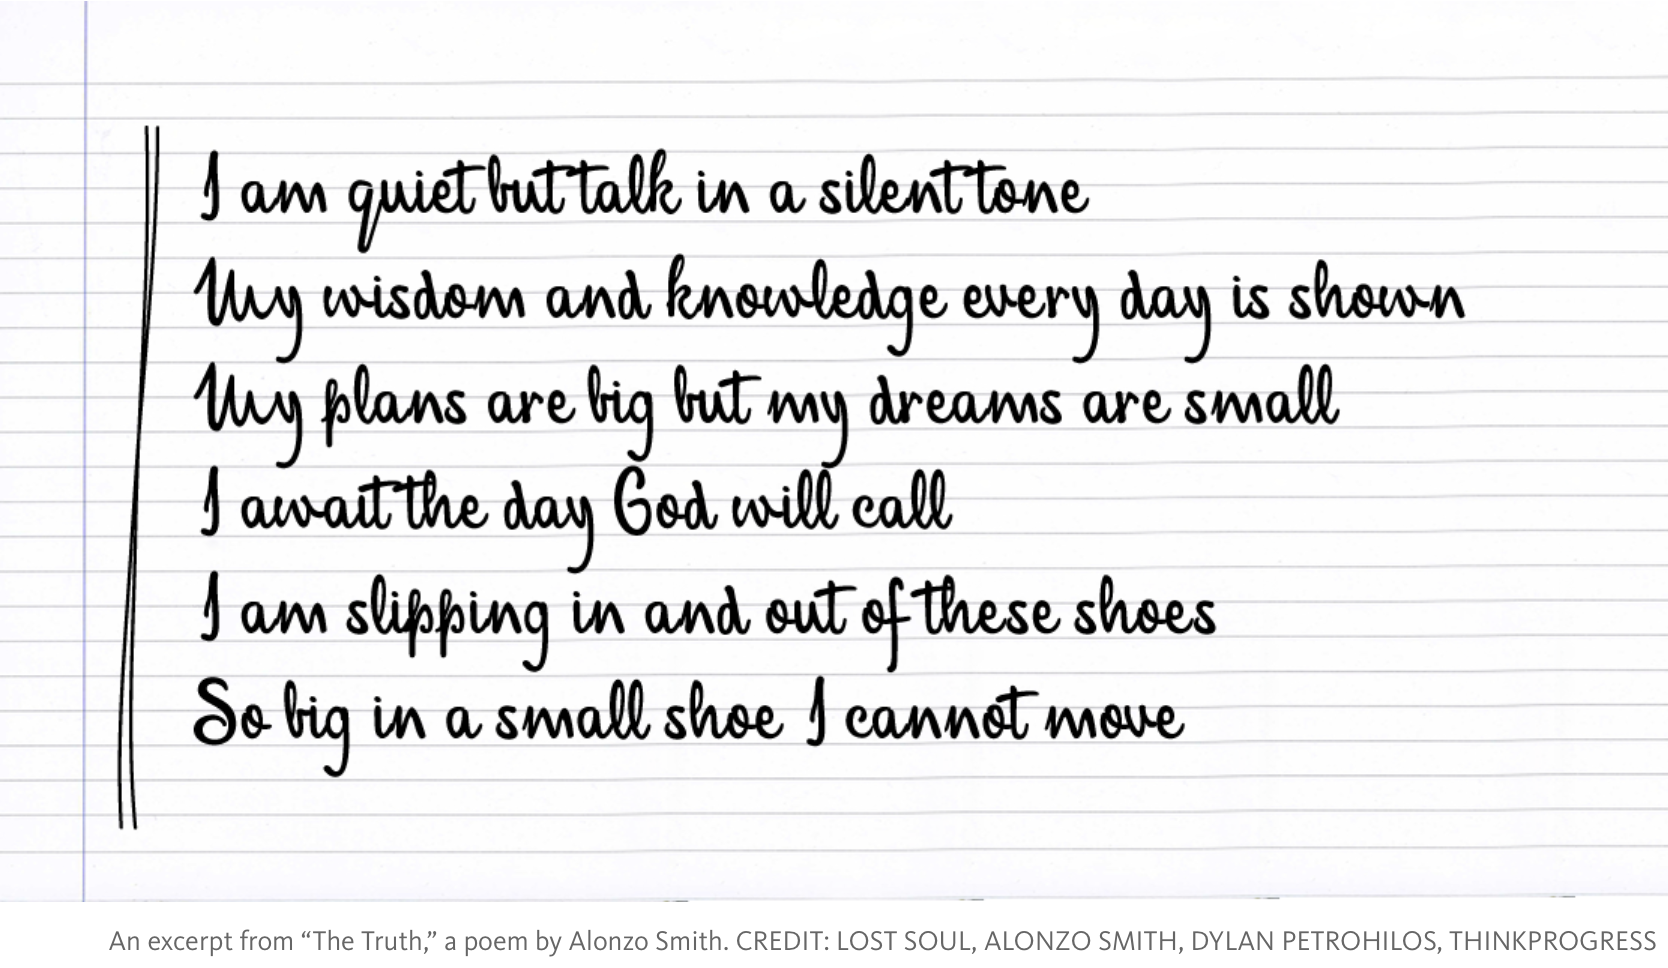 I am quiet but talk in a silent tone
My wisdom and knowledge every day is shown
My plans are big but my dreams are small
I await the day God will call
I am slipping in and out of these shoes
So big in a small shoe I cannot move
An excerpt from “The Truth,” a poem by Alonzo Smith. CREDIT: LOST SOUL, ALONZO SMITH, DYLAN PETROHILOS, THINKPROGRESS